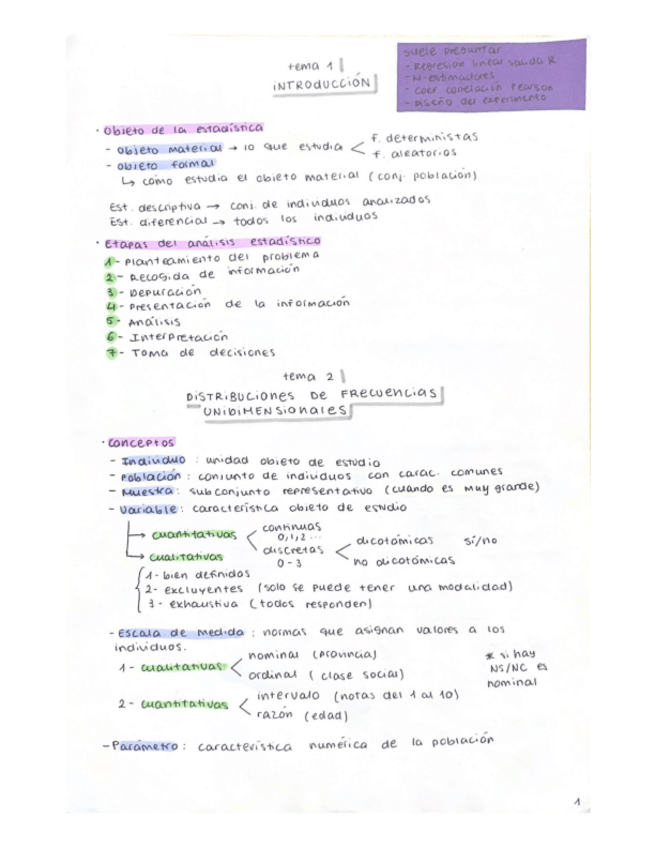 suele preguntar
- Regresión lineal salida R
- M-estimadores
- Coef correlación Pearson
- Diseño del experimento
tema 1
INTRODUCCIÓN
· Objeto de la estadística
- objeto material → lo que estudia < f. deterministas
f. aleatorios
- objeto formal
↳ cómo estudia el objeto material (conj. población)
Est. descriptiva → conj. de individuos analizados
Est. diferencial → todos los individuos
· Etapas del análisis estadístico
1 - Planteamiento del problema
2 - Recogida de información
3 - Depuración
4 - Presentación de la información
5 - Análisis
6 - Interpretación
7 - Toma de decisiones
tema 2
DISTRIBUCIONES DE FRECUENCIAS
UNIDIMENSIONALES
· Conceptos
- Individuo : unidad objeto de estudio
- Población : conjunto de individuos con carac. comunes
- Muestra : subconjunto representativo (cuando es muy grande)
- Variable : característica objeto de estudio
→ cuantitativas < continuas
0,1,2...
discretas < dicotómicas sí/no
0 - 3 no dicotómicas
→ cualitativas
1 - bien definidos
2 - excluyentes (solo se puede tener una modalidad)
3 - exhaustiva (todos responden)
- Escala de medida : normas que asignan valores a los
individuos.
1 - cualitativas < nominal (provincia)
ordinal (clase social)
* si hay
NS/NC es
nominal
2 - cuantitativas < intervalo (notas del 1 al 10)
razón (edad)
- Parámetro : característica numérica de la población
1